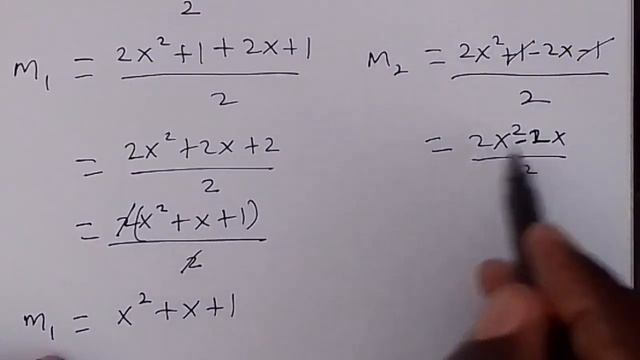 2
m₁ = 2x² + 1 + 2x + 1 / 2
= 2x² + 2x + 2 / 2
= 2(x² + x + 1) / 2
m₁ = x² + x + 1
m₂ = 2x² + 1 - 2x - 1 / 2
= 2x² - 2x / 2